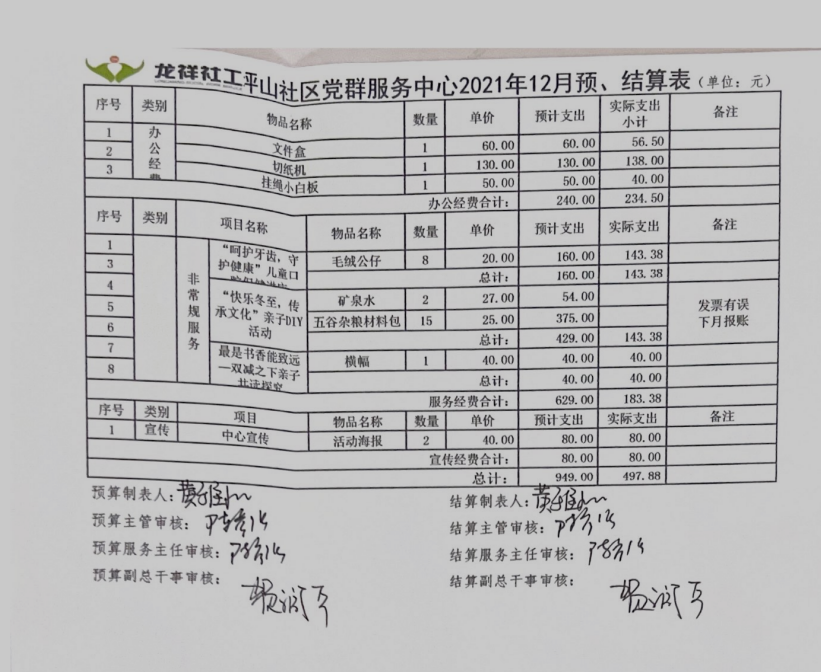 龙祥社工平山社区党群服务中心2021年12月预、结算表（单位：元）
序号 类别 物品名称 数量 单价 预计支出 实际支出小计 备注
1 办公经费 文件盒 1 60.00 60.00 56.50
2 切纸机 1 130.00 130.00 138.00
3 挂绳小白板 1 50.00 50.00 40.00
办公经费合计： 240.00 234.50
序号 类别 项目名称 物品名称 数量 单价 预计支出 实际支出 备注
1 非常规服务 “呵护牙齿，守护健康”儿童口 毛绒公仔 8 20.00 160.00 143.38
3 总计： 160.00 143.38
4 “快乐冬至，传承文化”亲子DIY活动 矿泉水 2 27.00 54.00 发票有误下月报账
5 五谷杂粮材料包 15 25.00 375.00
6 总计： 429.00 143.38
7 最是书香能致远—双减之下亲子共读探究 横幅 1 40.00 40.00 40.00
8 总计： 40.00 40.00
服务经费合计： 629.00 183.38
序号 类别 项目 物品名称 数量 单价 预计支出 实际支出 备注
1 宣传 中心宣传 活动海报 2 40.00 80.00 80.00
宣传经费合计： 80.00 80.00
总计： 949.00 497.88
预算制表人： 结算制表人：
预算主管审核： 结算主管审核：
预算服务主任审核： 结算服务主任审核：
预算副总干事审核： 结算副总干事审核：